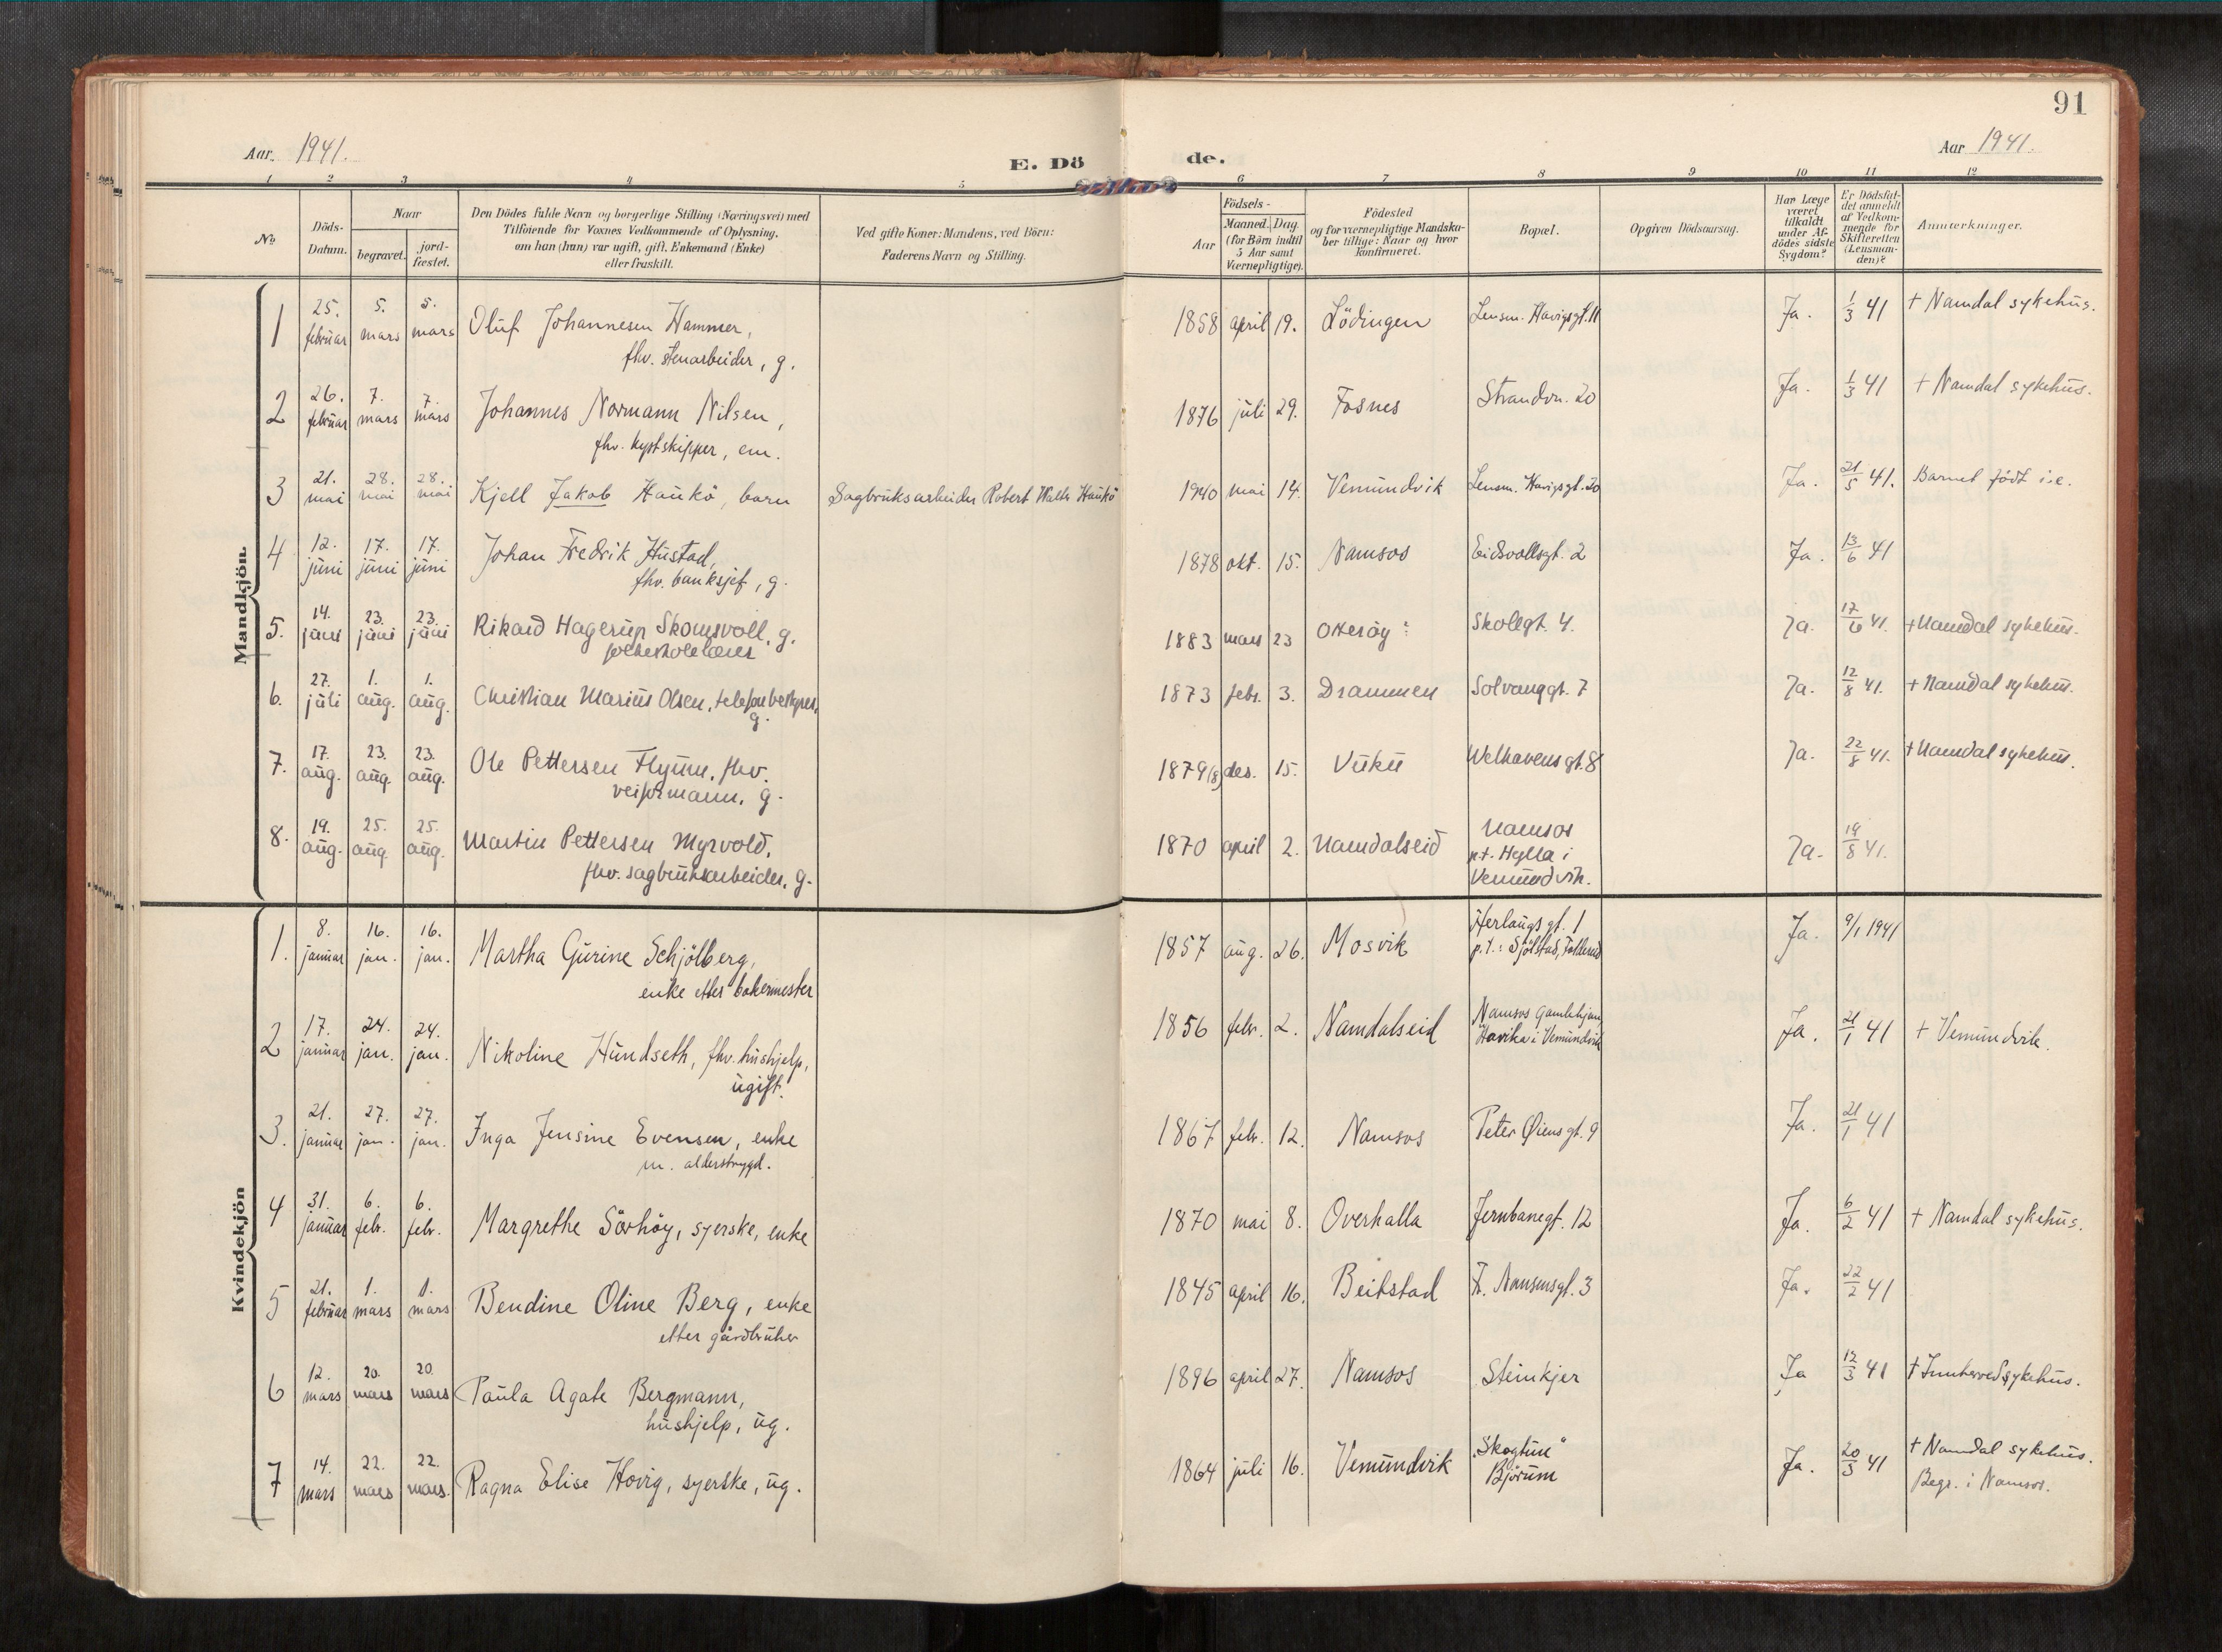 91
Aar. 1941.
E. Dö de.
Aar 1941.
1 2 3 4 5 6 7 8 9 10 11 12
No
Döds-Datum.
Naar
begravet.
jord-fæstet.
Den Dödes fulde Navn og borgerlige Stilling (Næringsvei) med
Tilföiende for Voxnes Vedkommende af Oplysning,
om han (hun) var ugift, gift, Enkemand (Enke)
eller fraskilt.
Ved gifte Koner: Mandens, ved Börn:
Faderens Navn og Stilling.
Födsels-
Aar
Maaned. Dag.
(for Börn indtil
5 Aar samt
Værnepligtige).
Födested
og for værnepligtige Mandska-
ber tillige: Naar og hvor
konfirmeret.
Bopæl.
Opgiven Dödsaarsag.
Har Læge
været
tilkaldt
under Af-
dödes sidste
Sygdom?
Er Dödsfal-
det anmeldt
af Vedkom-
mende for
Skifteretten
(Lensman-
den)?
Anmærkninger.
Mandkjön.
1 25. februar 5. mars 5. mars Oluf Johannesen Hammer, 1858 april 19. Lödingen Lensm. Havigsgt. 11 Ja. 1/3 41 + Namdal sykehus.
fhv. stenarbeider, g.
2 26. februar 7. mars 7. mars Johannes Normann Nilsen, 1876 juli 29. Fosnes Strandvn. 20 Ja. 1/3 41 + Namdal sykehus.
fhv. kystskipper, em.
3 21. mai 28. mai 28. mai Kjell Jakob Haukö, barn Sagbruksarbeider Robert Walter Haukö 1940 mai 14. Vemundvik Lensm. Havigsgt. 20 Ja. 21/5 41. Barnet födt i.e.
4 12. juni 17. juni 17. juni Johan Fredrik Hustad, 1878 okt. 15. Namsos Eidsvollsgt. 2 Ja. 13/6 41
fhv. banksjef, g.
5. 14. juni 23. juni 23. juni Rikard Hagerup Skomsvoll, g. 1883 mars 23 Otteröy Skolegt. 4. Ja. 17/6 41. + Namdal sykehus.
folkeskolelærer
6. 27. juli 1. aug. 1. aug. Christian Marius Olsen, telefonbestyrer, 1873 febr. 3. Drammen Solvanggt. 7 Ja. 12/8 41. + Namdal sykehus.
g.
7. 17. aug. 23. aug. 23. aug. Ole Pettersen Flyum, fhv. 1879(8) des. 15. Vuku Welhavensgt. 8 Ja. 22/8 41. + Namdal sykehus.
veiformann, g.
8. 19. aug. 25. aug. 25. aug. Martin Pettersen Myrvold, 1870 april 2. Namdalseid Namsos
p.t. Hylla i
Vemundvik. Ja. 19/8 41.
fhv. sagbruksarbeider, g.
Kvindekjön
1. 8. januar 16. jan. 16. jan. Martha Gurine Schjölberg, 1857 aug. 26. Mosvik Herlaugsgt. 1
p.t.: Sjölstad, Foldereid Ja. 9/1 1941
enke etter bakermester
2 17. januar 24. jan. 24. jan. Nikoline Hundseth, fhv. hushjelp, 1856 febr. 2. Namdalseid Namsos Gamlehjem
Havika i Vemundvik Ja. 21/1 41 + Vemundvik.
ugift.
3. 21. januar 27. jan. 27. jan. Inga Jensine Evensen, enke 1867 febr. 12. Namsos Peter Øiensgt. 9 Ja. 21/1 41
m. alderstrygd.
4 31. januar 6. febr. 6. febr. Margrethe Sörhöy, syerske, enke 1870 mai 8. Overhalla Jernbanegt. 12 Ja. 6/2 41 + Namdal sykehus.
5 21. februar 1. mars 1. mars Bendine Oline Berg, enke 1845 april 16. Beitstad F. Nansensgt. 3 Ja. 22/2 41
etter gårdbruker
6 12. mars 20. mars 20. mars Paula Agate Bergmann, 1896 april 27. Namsos Steinkjer Ja 12/3 41 + Innherred sykehus.
hushjelp, ug.
7 14. mars 22. mars 22. mars. Ragna Elise Hovig, syerske, ug. 1864 juli 16. Vemundvik „Skogtun“
Bjørum Ja. 20/3 41 + Namdal sykehus.
Begr. i Namsos.